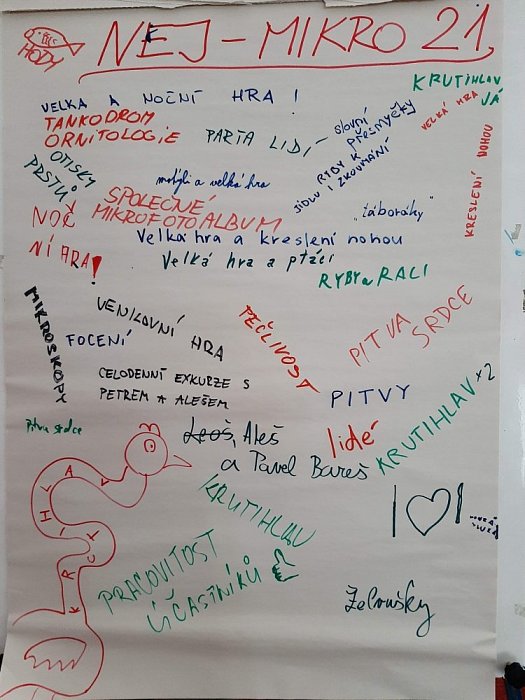 NEJ-MIKRO 21
HODY
KRUTIHLAV
JÁ
VELKÁ A NOČNÍ HRA!
TANKODROM
ORNITOLOGIE
PARTA LIDÍ
slovní
přesmyčky
VELKÁ HRA
KRESLENÍ NOHOU
OTISKY
PRSTŮ
motýli a velká hra
RYBY K
JÍDLU I ZKOUMÁNÍ
SPOLEČNÉ
MIKROFOTOALBUM
„žáboráky"
NOČ
NÍ HRA!
Velká hra a kreslení nohou
Velká hra a ptáci
RYBY a RACI
MIKROSKOPY
VENILOVNÍ HRA
FOCENÍ
PEČLIVOST
PITVA
SRDCE
CELODENNÍ EXKURZE S
PETREM A ALEŠEM
PITVY
KRUTIHLAV x2
Pitva srdce
Leoš, Aleš
a Pavel Bareš
lidé
KRUTIHLAV
KRUTIHLAV
PRACOVITOST
ÚČASTNÍKŮ